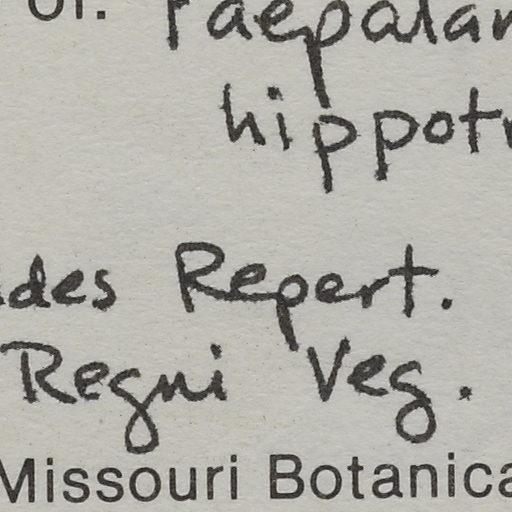 of. Paepalan
hippotr
des Repert.
Regni Veg.
Missouri Botanica